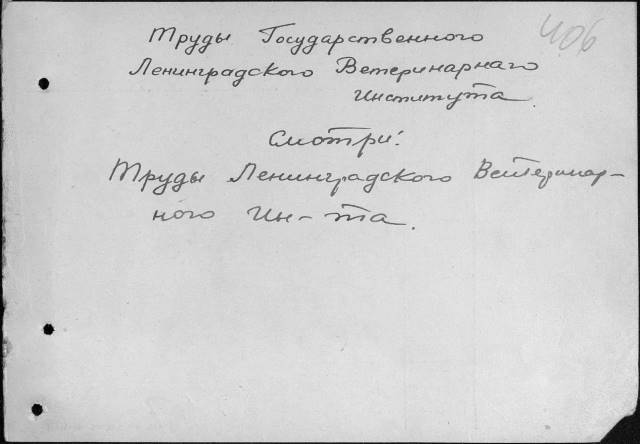 406
Труды Государственного
Ленинградского Ветеринарнаго
Института.
Смотри:
Труды Ленинградского Ветеринар-
ного Ин-та.